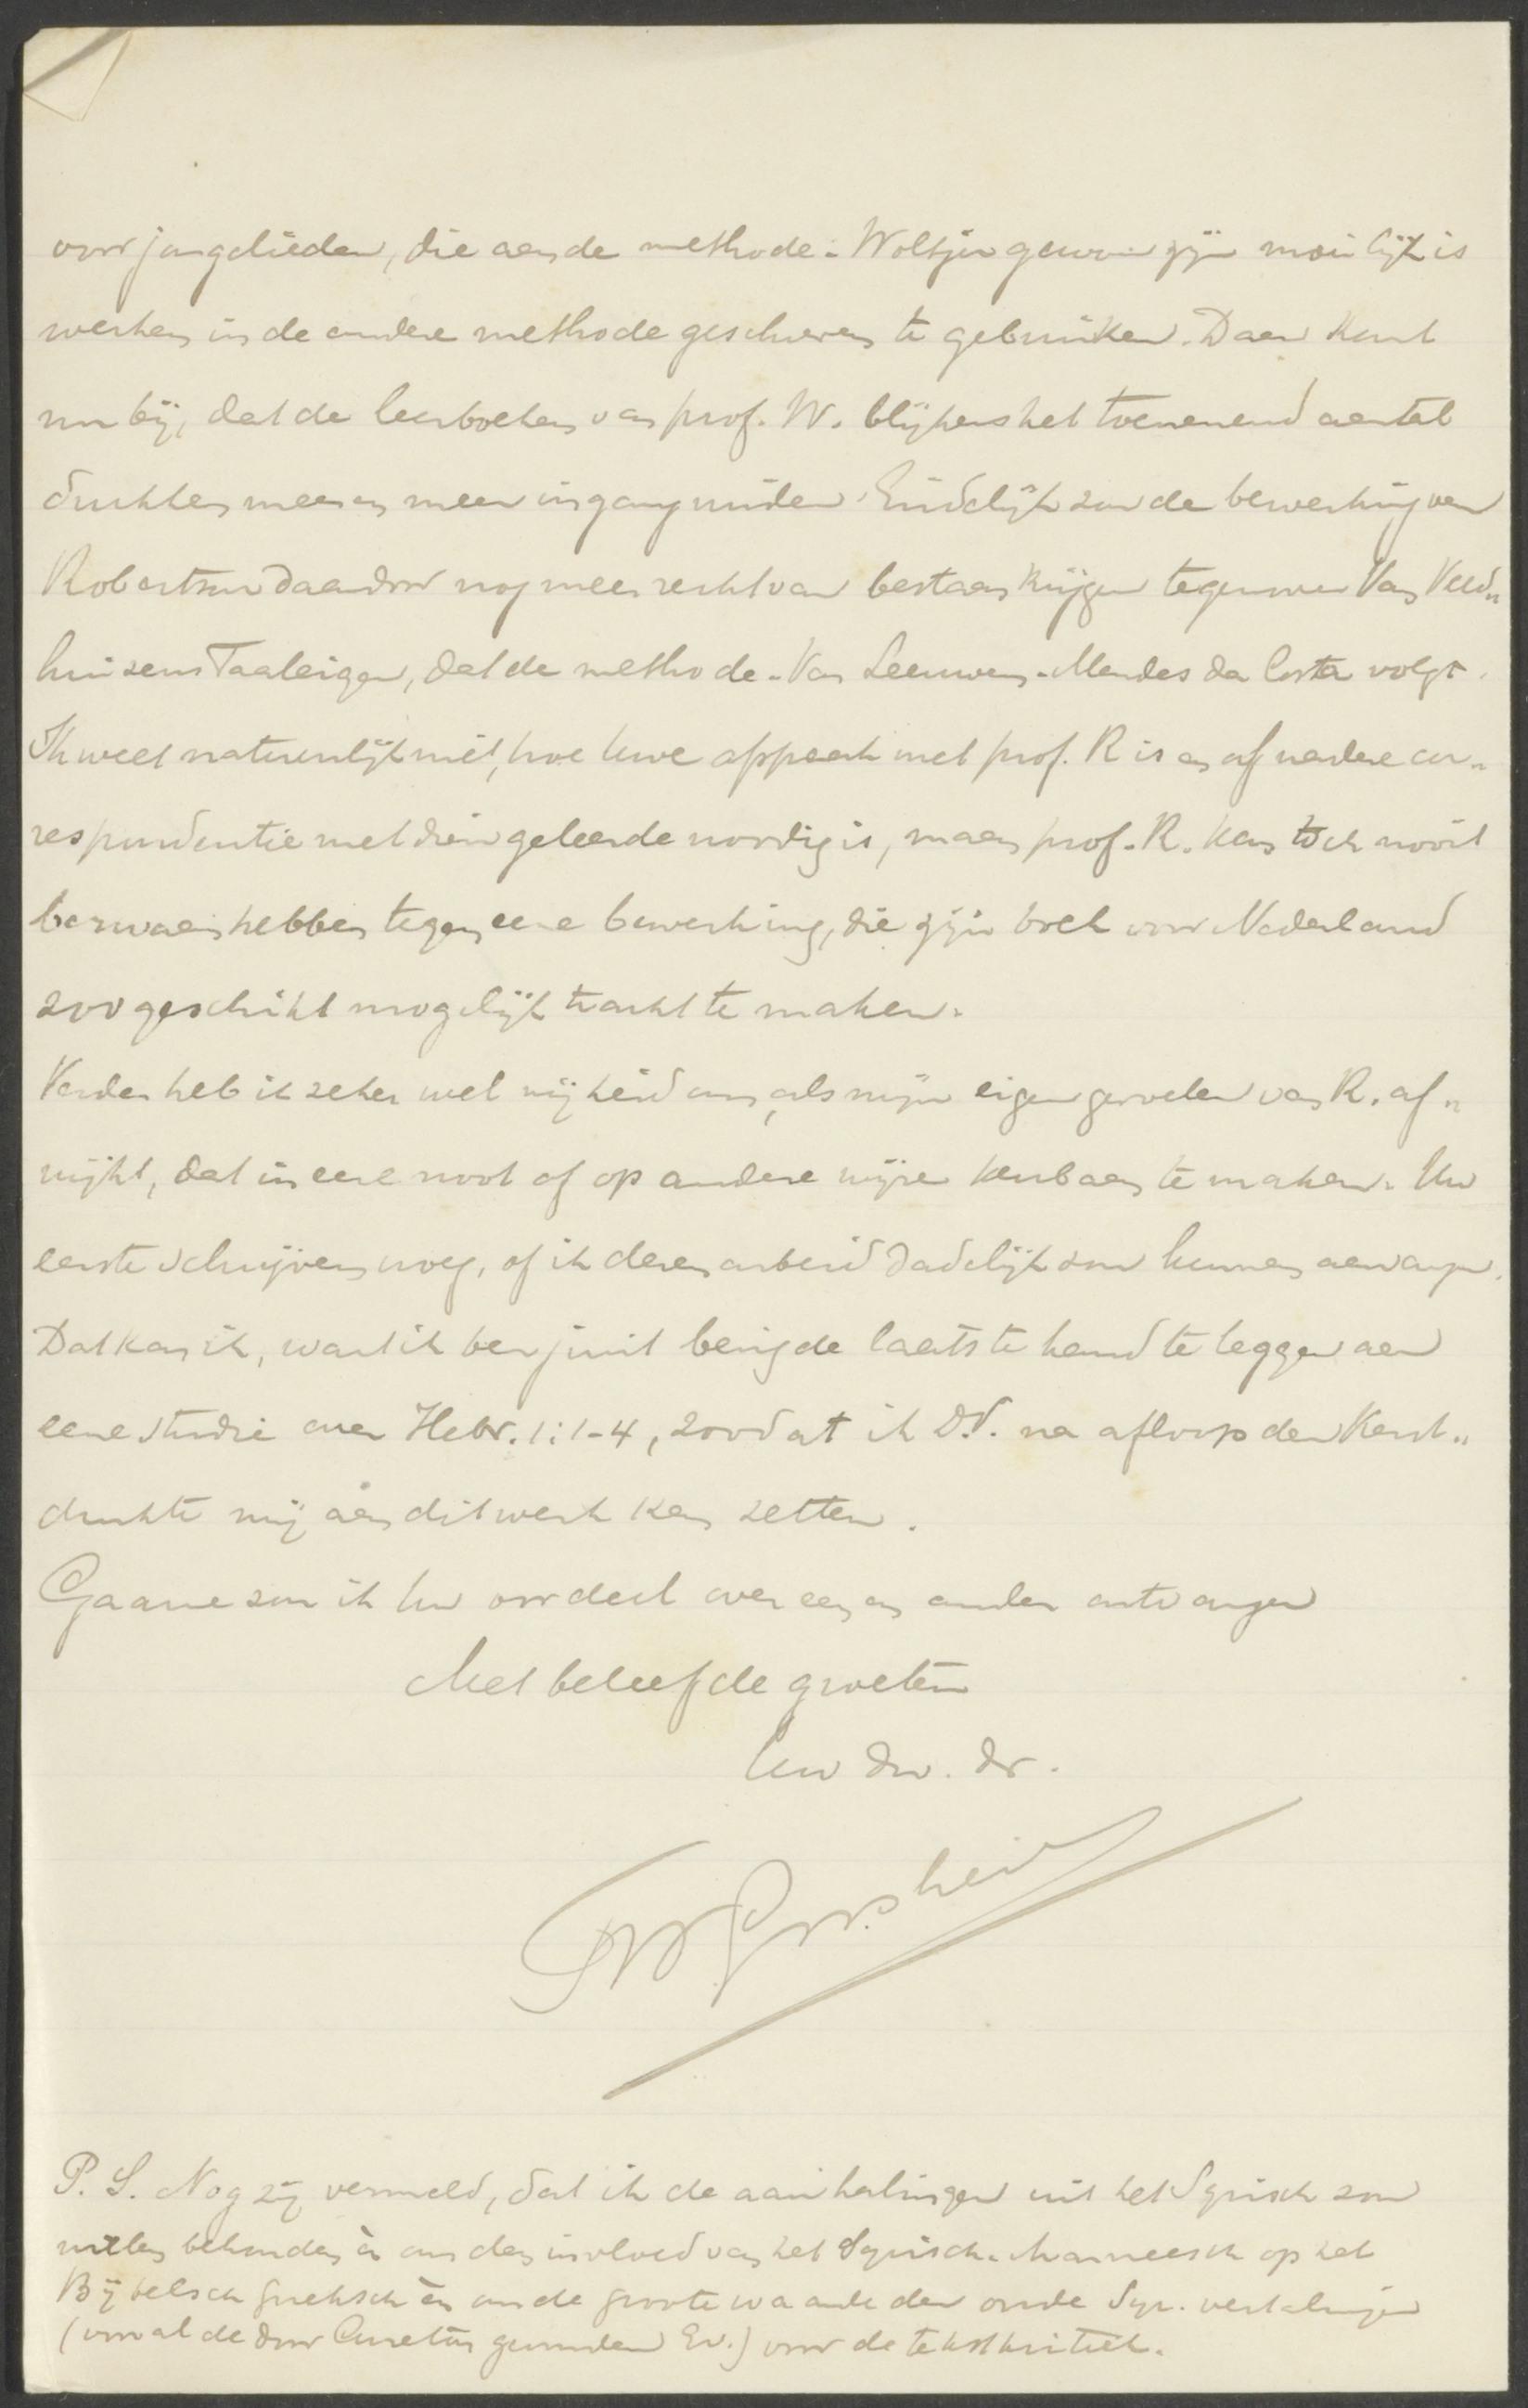 voor jongelieden, die aan de methode-Woltjer gewoon zijn moeilijk is
werken in de andere methode geschreven te gebruiken. Daar komt
nu bij, dat de leerboeken van prof. W. blijkens het toenemend aantal
drukken meer en meer ingang vinden. Eindelijk zou de bewerking van
Robertson daardoor nog meer recht van bestaan krijgen tegenover Van Veld„
huizens Taaleigen, dat de methode-Van Leeuwen-Mendes da Costa volgt.
Ik weet natuurlijk niet, hoe Uwe afspraak met prof. R is en of nadere cor„
respondentie met dien geleerde noodig is, maar prof. R. kan toch nooit
bezwaar hebben tegen eene bewerking, die zijn boek voor Nederland
zoo geschikt mogelijk tracht te maken.
Verder heb ik zeker wel vrijheid om, als mijn eigen gevoelen van R. af„
wijkt, dat in eene noot of op andere wijze kenbaar te maken. Uw
eerste schrijven vroeg, of ik dezen arbeid dadelijk zou kunnen aanvangen.
Dat kan ik, want ik ben juist bezig de laatste hand te leggen aan
eene studie over Hebr. 1:1-4, zoodat ik D.V. na afloop der Kerst„
drukte mij aan dit werk kan zetten.
Gaarne zou ik Uw oordeel over een en ander ontvangen
Met beleefde groeten
Uw dw. dr.
FWGrosheide
P.S. Nog zij vermeld, dat ik de aanhalingen uit het Syrisch zou
willen behouden èn om den invloed van het Syrisch-Arameesch op het
Bijbelsch Grieksch èn om de groote waarde der oude Syr. vertalingen
(vooral de door Cureton gevonden Ev.) voor de tekstkritiek.